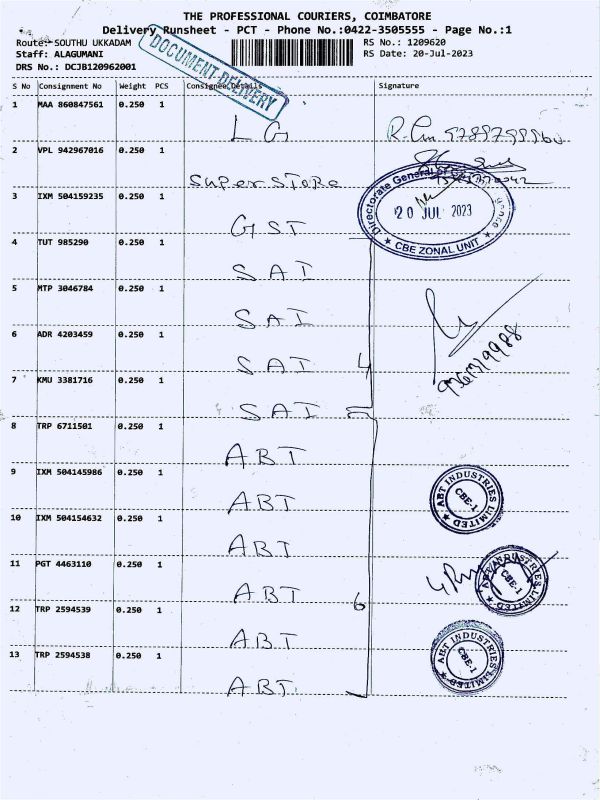 THE PROFESSIONAL COURIERS, COIMBATORE
Delivery Runsheet - PCT - Phone No.:0422-3505555 - Page No.:1
Route: SOUTHU UKKADAM
RS No.: 1209620
Staff: ALAGUMANI
RS Date: 20-Jul-2023
DRS No.: DCJB120962001
DOCUMENT DELIVERY
S No Consignment No Weight PCS Consignee Details Signature
1 MAA 860847561 0.250 1 LG
2 VPL 942967016 0.250 1 Super Store
3 IXM 504159235 0.250 1 GST
Directorate General of
20 JUL 2023
CBE ZONAL UNIT
4 TUT 985290 0.250 1 SAI
5 MTP 3046784 0.250 1 SAI
6 ADR 4203459 0.250 1 SAI 4
7 KMU 3381716 0.250 1 SAI
8 TRP 6711501 0.250 1 ABT
9 IXM 504145986 0.250 1 ABT
ABT INDUSTRIES LIMITED
CBE-1
10 IXM 504154632 0.250 1 ABT
11 PGT 4463110 0.250 1 ABT 6
ABT INDUSTRIES LIMITED
CBE-1
12 TRP 2594539 0.250 1 ABT
13 TRP 2594538 0.250 1 ABT
ABT INDUSTRIES LIMITED
CBE-1